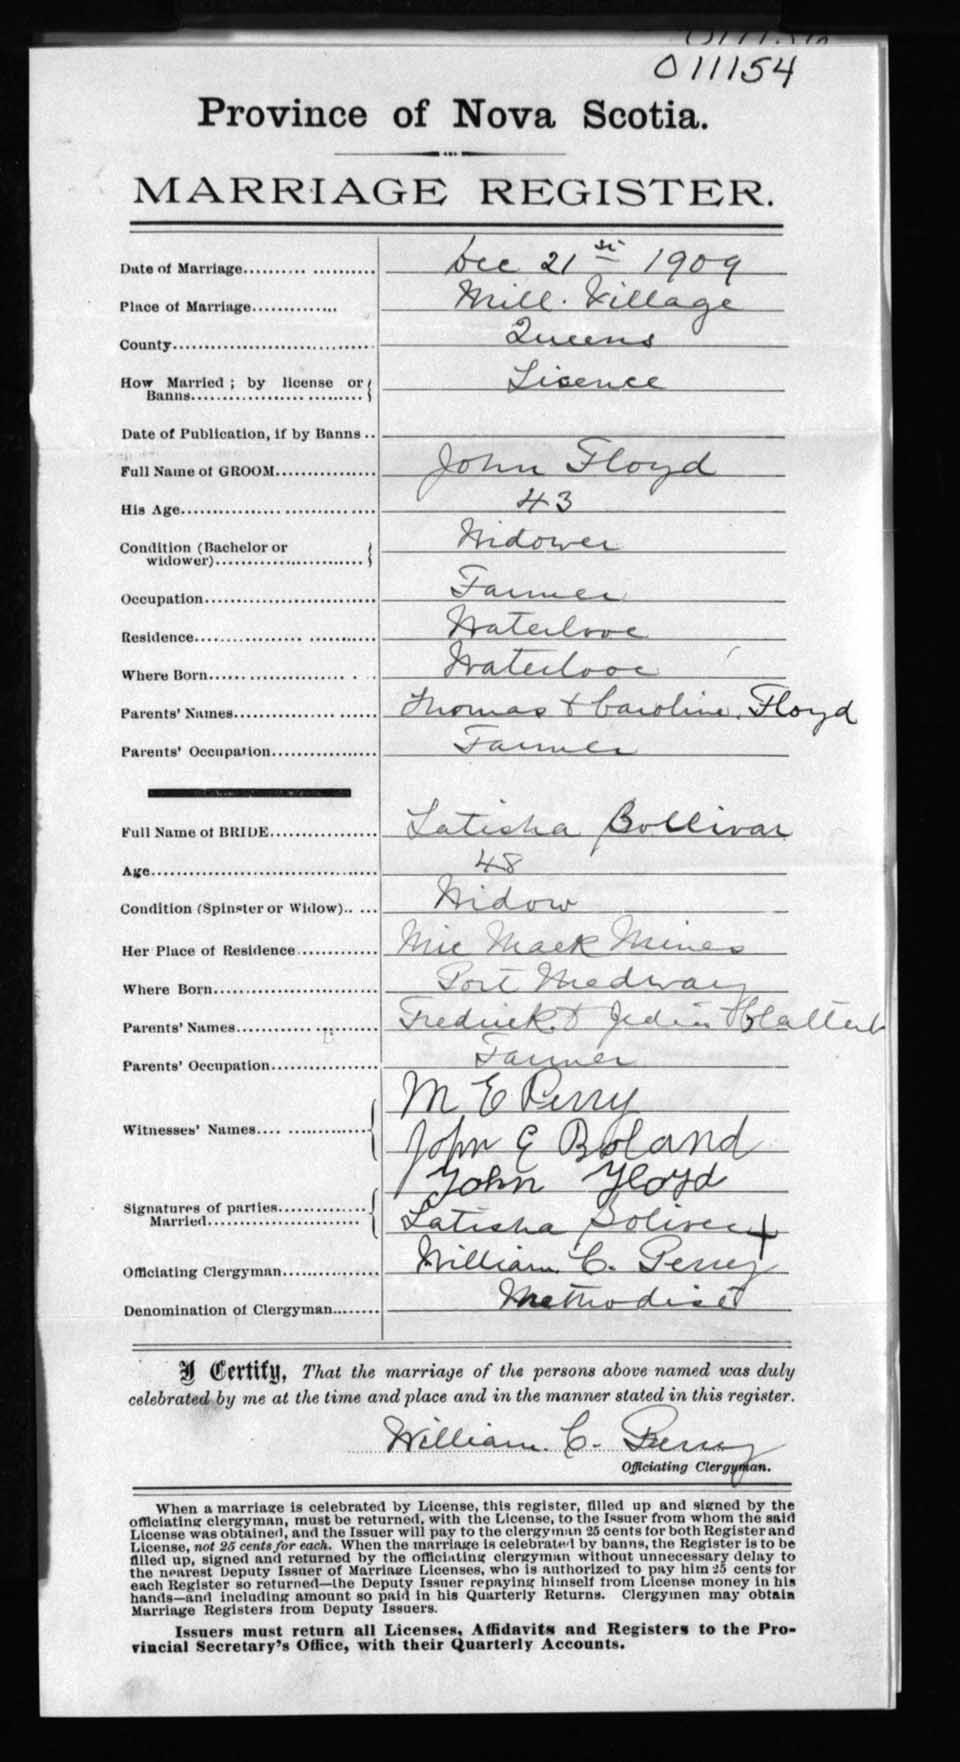 011154
Province of Nova Scotia.
MARRIAGE REGISTER.
Date of Marriage Dec 21st 1909
Place of Marriage Mill Village
County Queens
How Married ; by license or Banns Lisence
Date of Publication, if by Banns
Full Name of GROOM John Floyd
His Age 43
Condition (Bachelor or widower) Widower
Occupation Farmer
Residence Waterlooe
Where Born Waterlooe
Parents' Names Thomas & Caroline Floyd
Parents' Occupation Farmer
Full Name of BRIDE Latisha Bollivar
Age 48
Condition (Spinster or Widow) Widow
Her Place of Residence Mic Mack Mines
Where Born Port Medway
Parents' Names Fredrick &
Parents' Occupation Farmer
Witnesses' Names M E Perry
John E Boland
Signatures of parties Married John Floyd
Latisha +
Officiating Clergyman William C. Perry
Denomination of Clergyman Methodist
I Certify, That the marriage of the persons above named was duly
celebrated by me at the time and place and in the manner stated in this register.
William C. Perry
Officiating Clergyman.
When a marriage is celebrated by License, this register, filled up and signed by the
officiating clergyman, must be returned, with the License, to the Issuer from whom the said
License was obtained, and the Issuer will pay to the clergyman 25 cents for both Register and
License, not 25 cents for each. When the marriage is celebrated by banns, the Register is to be
filled up, signed and returned by the officiating clergyman without unnecessary delay to
the nearest Deputy Issuer of Marriage Licenses, who is authorized to pay him 25 cents for
each Register so returned—the Deputy Issuer repaying himself from License money in his
hands—and including amount so paid in his Quarterly Returns. Clergymen may obtain
Marriage Registers from Deputy Issuers.
Issuers must return all Licenses, Affidavits and Registers to the Pro-
vincial Secretary's Office, with their Quarterly Accounts.